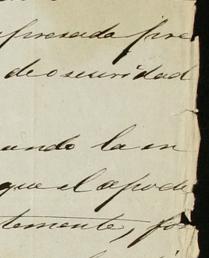 presada pre
de oscuridad
ando la m
que el apode
temente, por